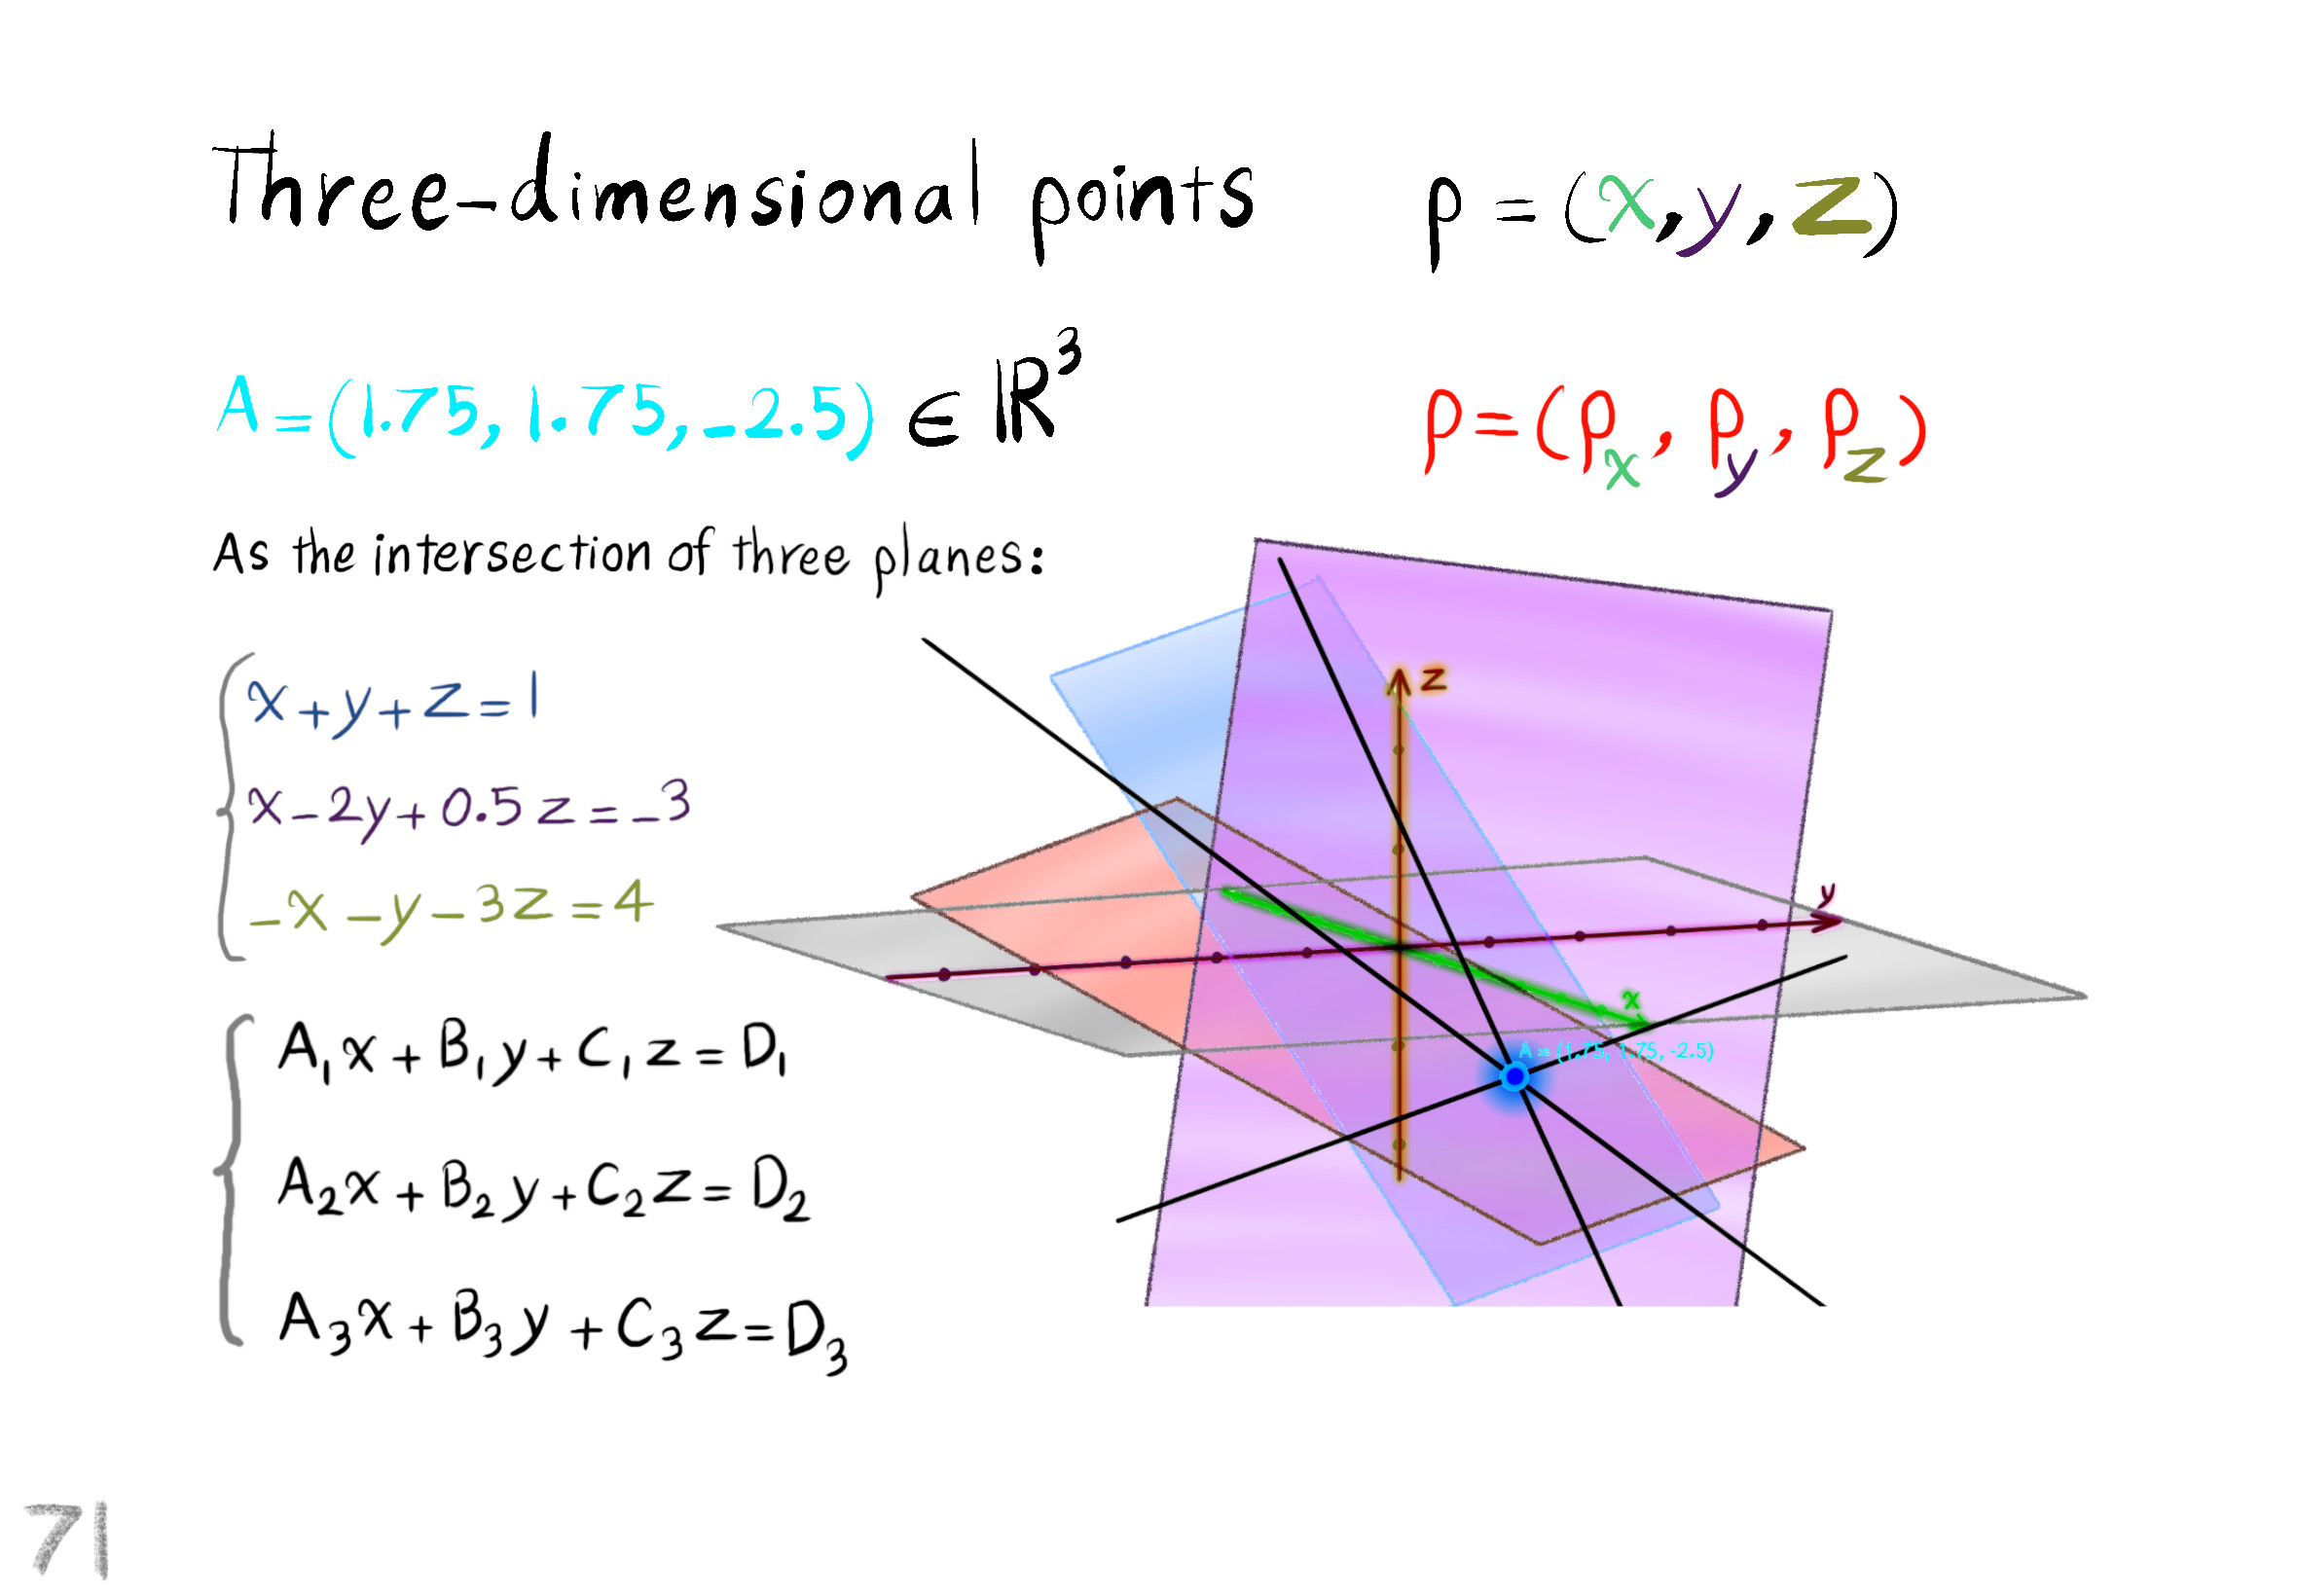 Three-dimensional points
p = (x, y, z)
A = (1.75, 1.75, -2.5) ∈ ℝ³
p = (pₓ, p_y, p_z)
As the intersection of three planes:
x + y + z = 1
x - 2y + 0.5 z = -3
-x - y - 3z = 4
A₁x + B₁y + C₁z = D₁
A₂x + B₂y + C₂z = D₂
A₃x + B₃y + C₃z = D₃
z
y
x
A = (1.75, 1.75, -2.5)
71